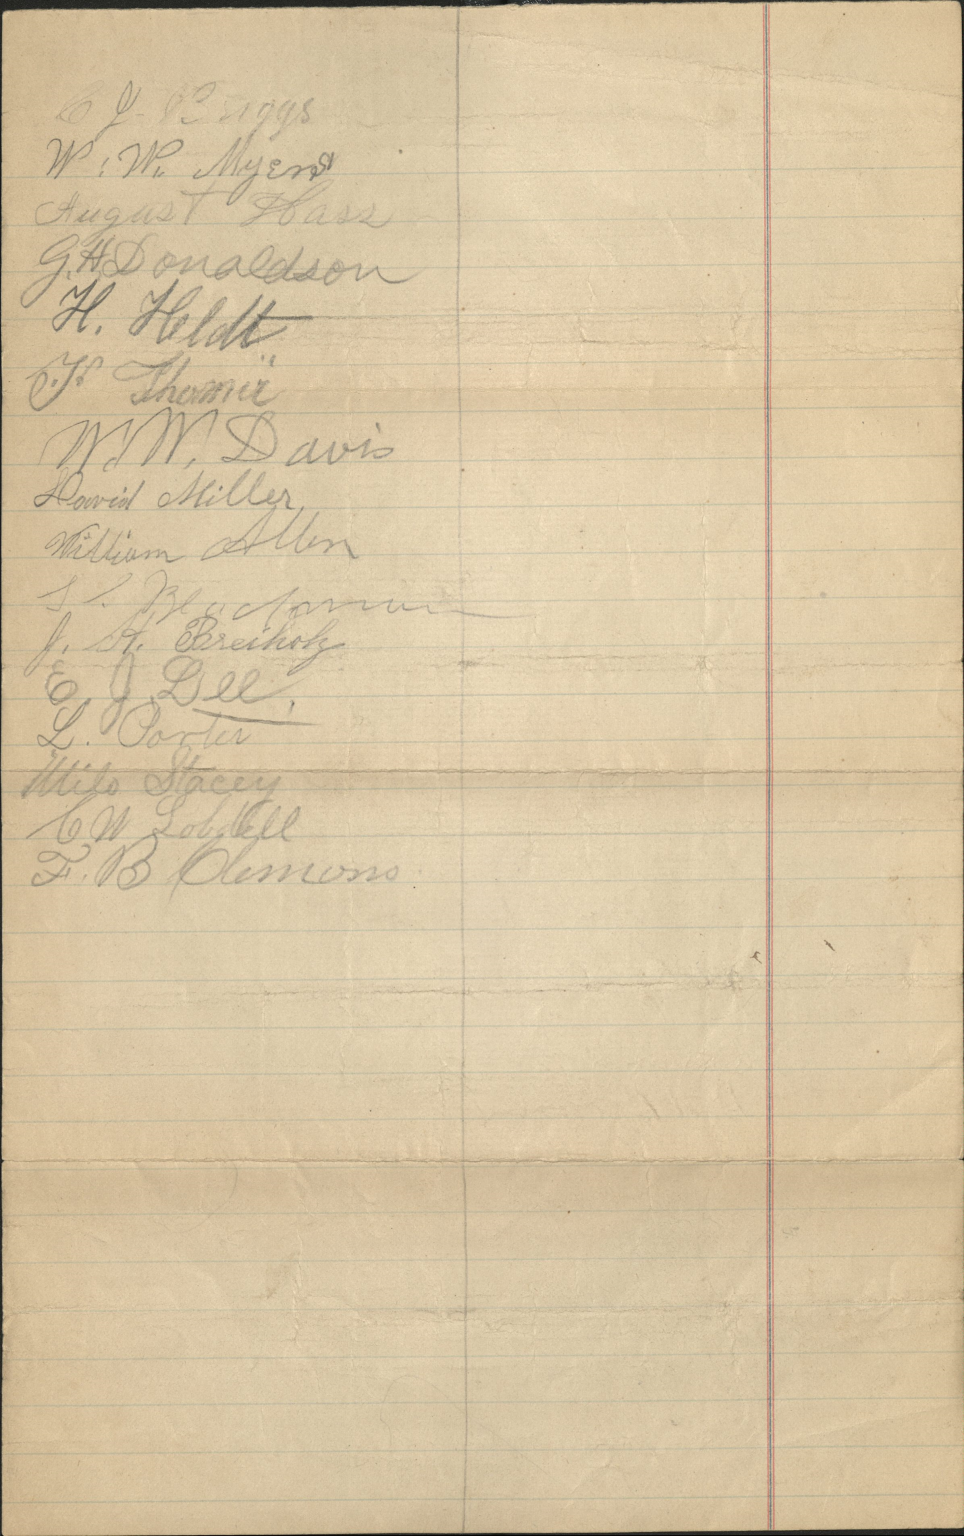 C J. Briggs
W. W. Myers
August Hass
G. H. Donaldson
H. Heldt
W. W. Davis
David Miller
William Allen
J. H. Breiholz
E. J. Dee.
L. Porter
Milo Stacey
C W Lobdell
F. B Clemons